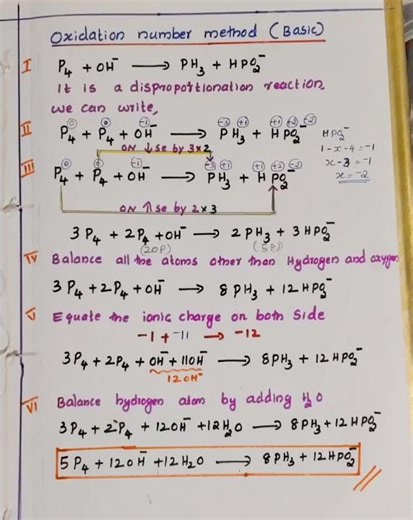 Oxidation number method (Basic)
I P₄ + OH⁻ ⟶ PH₃ + HPO₂⁻
It is a disproportionation reaction
we can write,
II P₄ + P₄ + OH⁻ ⟶ PH₃ + HPO₂⁻
HPO₂⁻
ON ↓se by 3×2
1-x-4=-1
x-3=-1
x=-2
III P₄ + P₄ + OH⁻ ⟶ PH₃ + HPO₂⁻
ON ↑se by 2×3
3P₄ + 2P₄ + OH⁻ ⟶ 2PH₃ + 3HPO₂⁻
(20P) (5P)
IV Balance all the atoms other than Hydrogen and oxygen
3P₄ + 2P₄ + OH⁻ ⟶ 8PH₃ + 12HPO₂⁻
V Equate the ionic charge on both side
-1 + -11 → -12
3P₄ + 2P₄ + OH⁻ + 11OH⁻ ⟶ 8PH₃ + 12HPO₂⁻
12OH⁻
VI Balance hydrogen atom by adding H₂O
3P₄ + 2P₄ + 12OH⁻ + 12H₂O ⟶ 8PH₃ + 12HPO₂⁻
5P₄ + 12OH⁻ + 12H₂O ⟶ 8PH₃ + 12HPO₂⁻